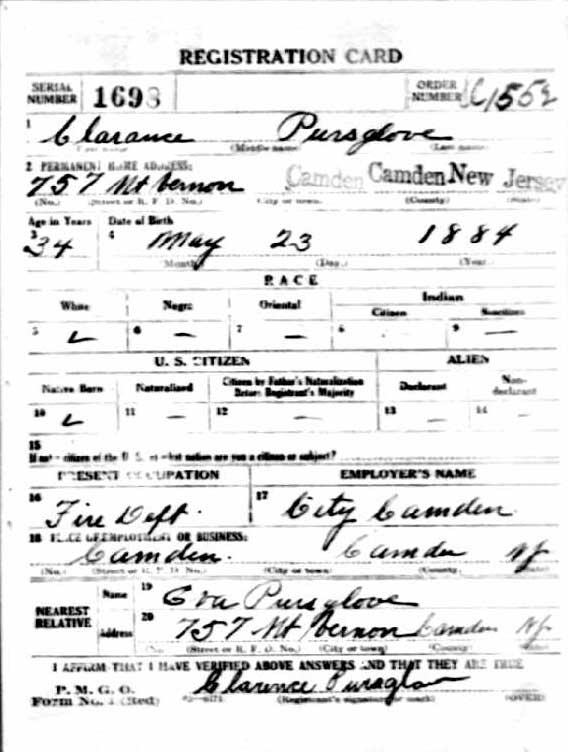 REGISTRATION CARD
SERIAL NUMBER 1698 ORDER NUMBER
1 Clarance Pursglove
(Middle name) (Last name)
2 PERMANENT HOME ADDRESS:
757 Mt Vernon Camden Camden New Jersey
(No.) (Street or R. F. D. No.) (City or town) (County) (State)
Age in Years Date of Birth
3 34 4 May 23 1884
(Month) (Day) (Year)
RACE
White Negro Oriental Indian
Citizen Noncitizen
5 6 — 7 — 8 9 —
U. S. CITIZEN ALIEN
Native Born Naturalized Citizen by Father's Naturalization Before Registrant's Majority Declarant Non-declarant
10 11 — 12 — 13 — 14 —
15
If not a citizen of the U. S. of what nation are you a citizen or subject?
PRESENT OCCUPATION EMPLOYER'S NAME
16 Fire Dept. 17 City Camden
18 PLACE OF EMPLOYMENT OR BUSINESS:
Camden. Camden NJ
(No.) (Street or R. F. D. No.) (City or town) (County) (State)
NEAREST RELATIVE
Name 19 Eva Pursglove
Address 20 757 Mt Vernon Camden NJ
(No.) (Street or R. F. D. No.) (City or town) (County) (State)
I AFFIRM THAT I HAVE VERIFIED ABOVE ANSWERS AND THAT THEY ARE TRUE
P. M. G. O.
Form No. 1 (Red) Clarence Pursglove
(Registrant's signature or mark) (OVER)